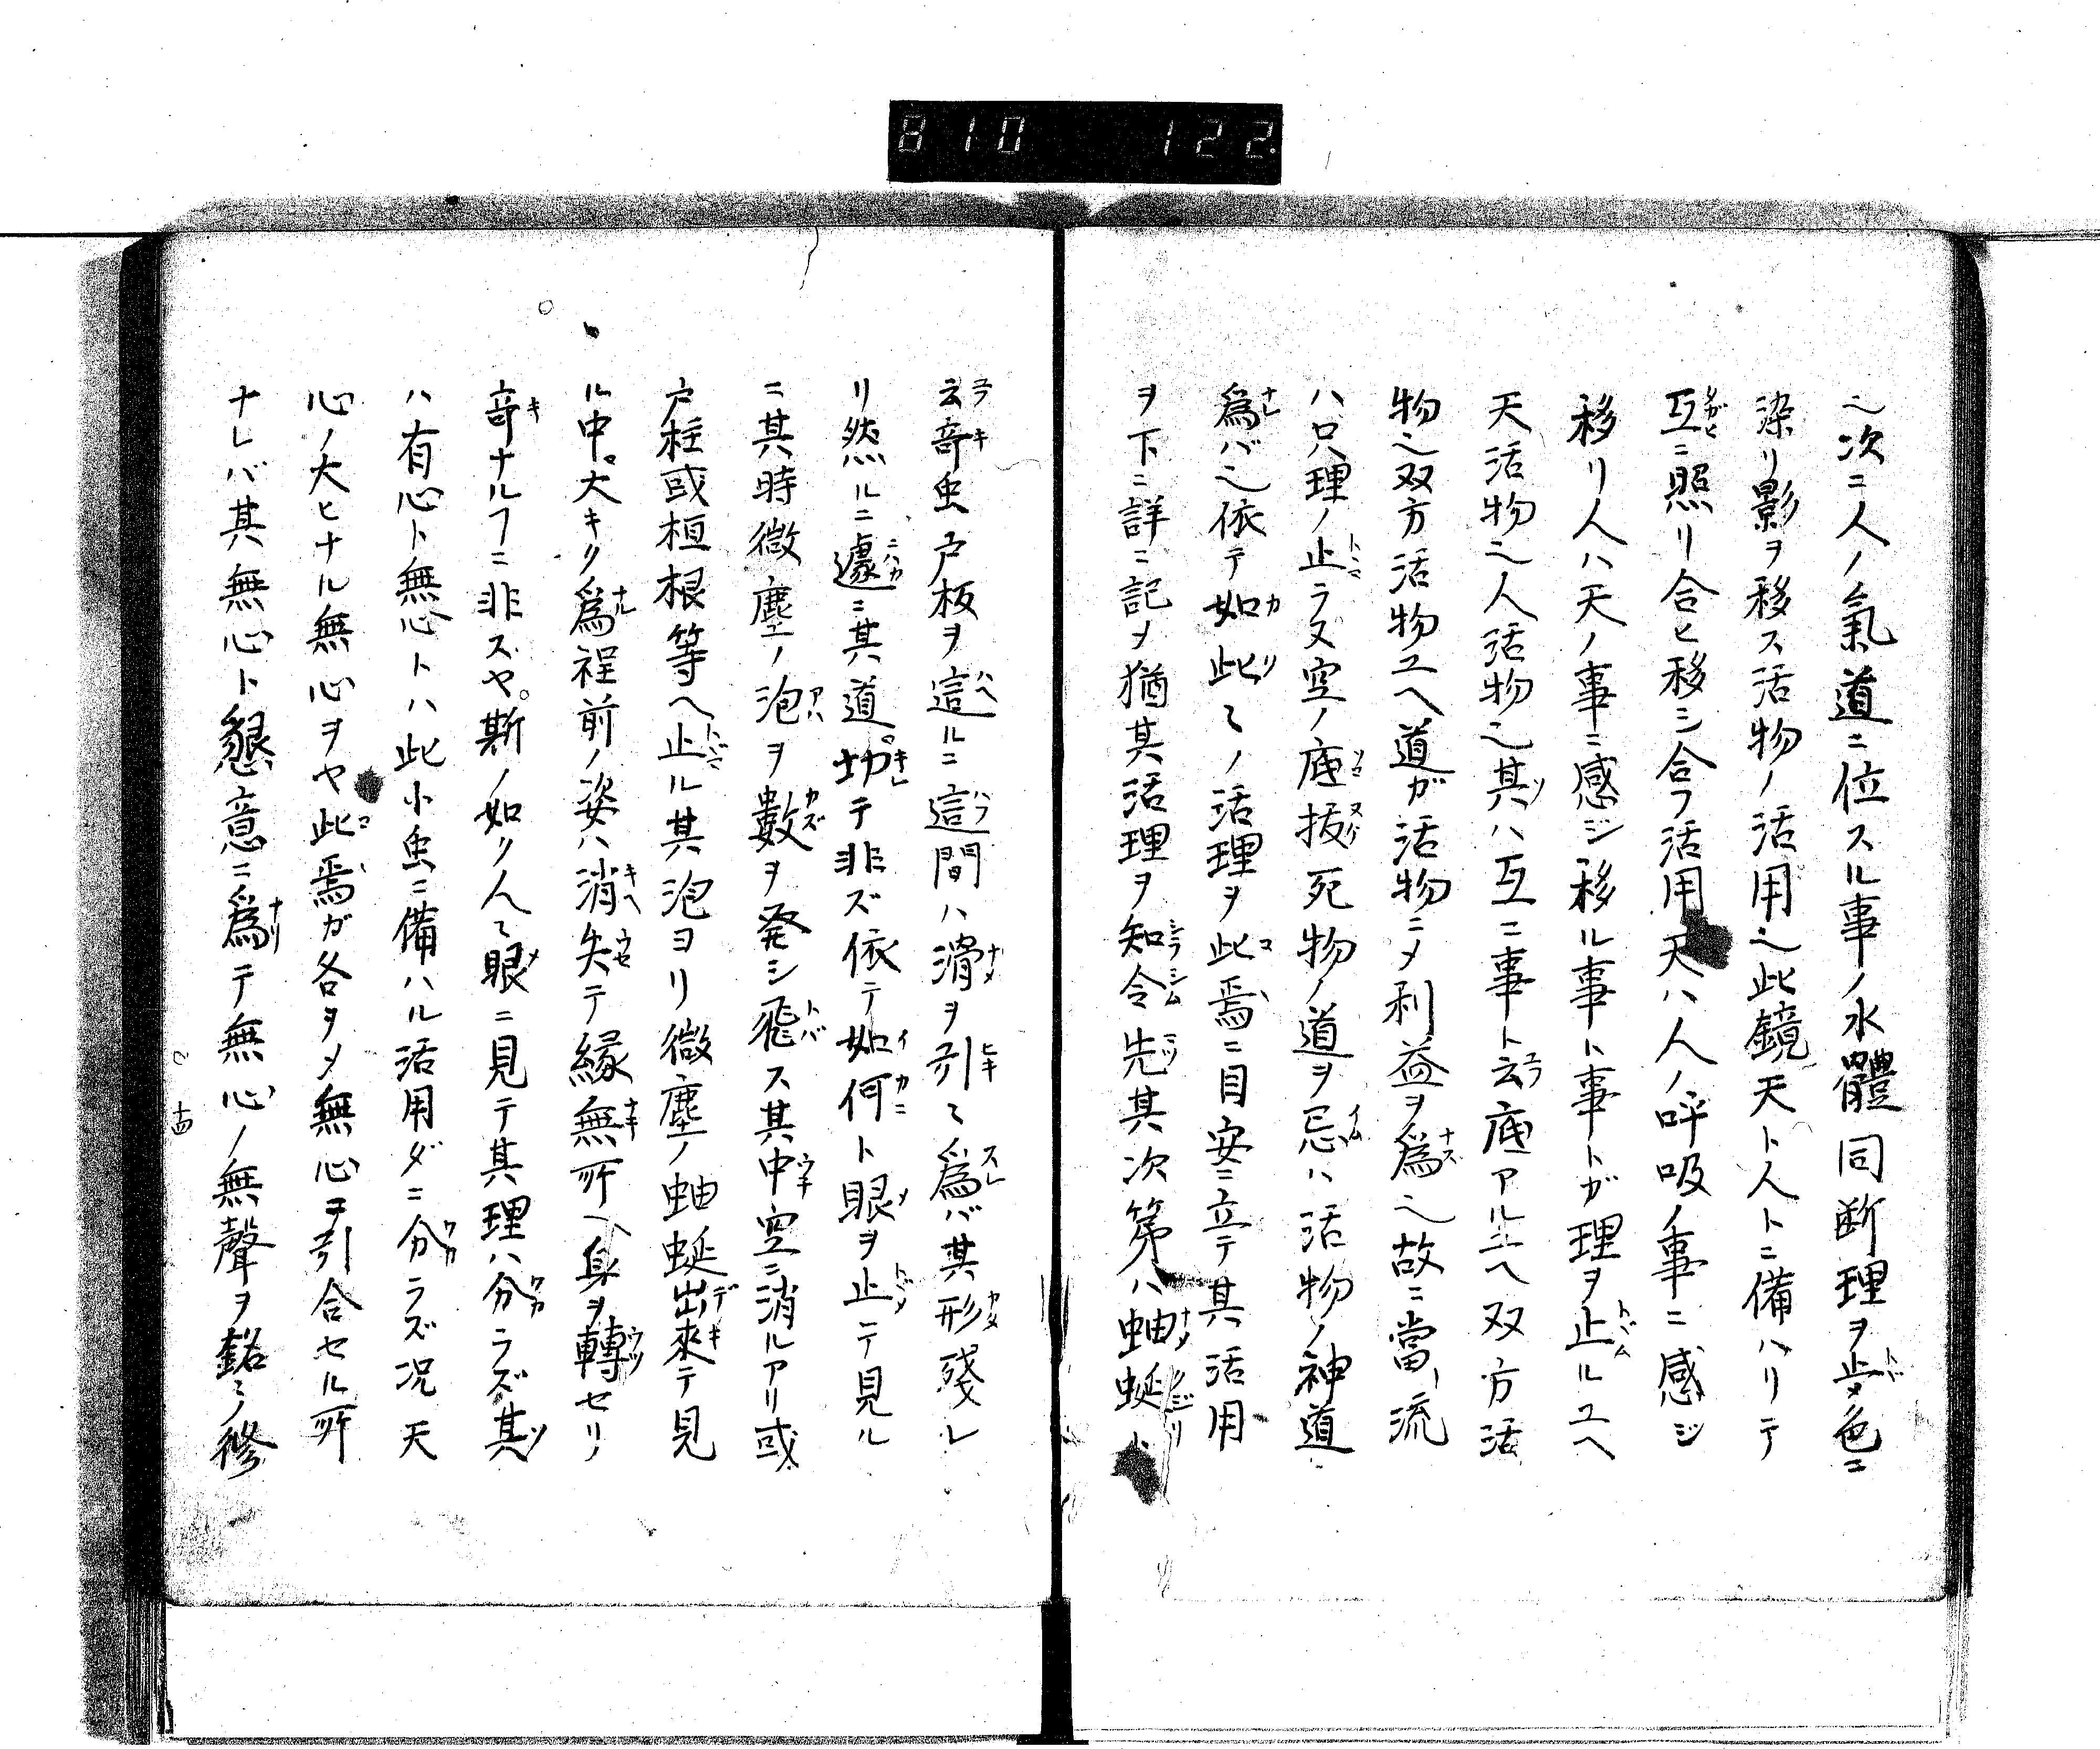 810 122
〻次ニ人ノ氣道ニ位スル事ノ水體同断理ヲ止メ色ニ
染リ影ヲ移ス活物ノ活用〻此鏡天ト人トニ備ハリテ
互ニ照リ合ヒ移シ合フ活用天ハ人ノ呼吸ノ事ニ感ジ
移リ人ハ天ノ事ニ感ジ移ル事ト事トガ理ヲ止ルユヘ
天活物〻人活物〻其ハ互ニ事ト云フ底アルユヘ双方活
物〻双方活物ユヘ道ガ活物ニメ利益ヲ為〻故ニ當流
ハ只理ノ止ラヌ空ノ底抜死物ノ道ヲ忌ハ活物ノ神道
為バ〻依テ如此〻ノ活理ヲ此焉ニ目安ニ立テ其活用
ヲ下ニ詳ニ記メ猶其活理ヲ知令先其次第ハ蚰蜒ト
云奇虫戸板ヲ這ルニ這間ハ滑ヲ引〻為バ其形残レ
リ然ルニ遽ニ其道切テ非ズ依テ如何ト眼ヲ止テ見ル
ニ其時微塵ノ泡ヲ數ヲ発シ飛ス其中空ニ消ルアリ或
戸柱或垣根等ヘ止ル其泡ヨリ微塵ノ蚰蜒出來テ見
ル中大キク為程前ノ姿ハ消失テ縁無所ヘ身ヲ轉セリ
奇ナルフニ非ズヤ斯ノ如ク人〻眼ニ見テ其理ハ分ラズ其
ハ有心ト無心トハ此小虫ニ備ハル活用ダニ分ラズ况天
心ノ大ヒナル無心ヲヤ此焉ガ各ヲメ無心ヲ引合セル所
ナレバ其無心ト懇意ニ為テ無心ノ無聲ヲ〻ノ修
十四